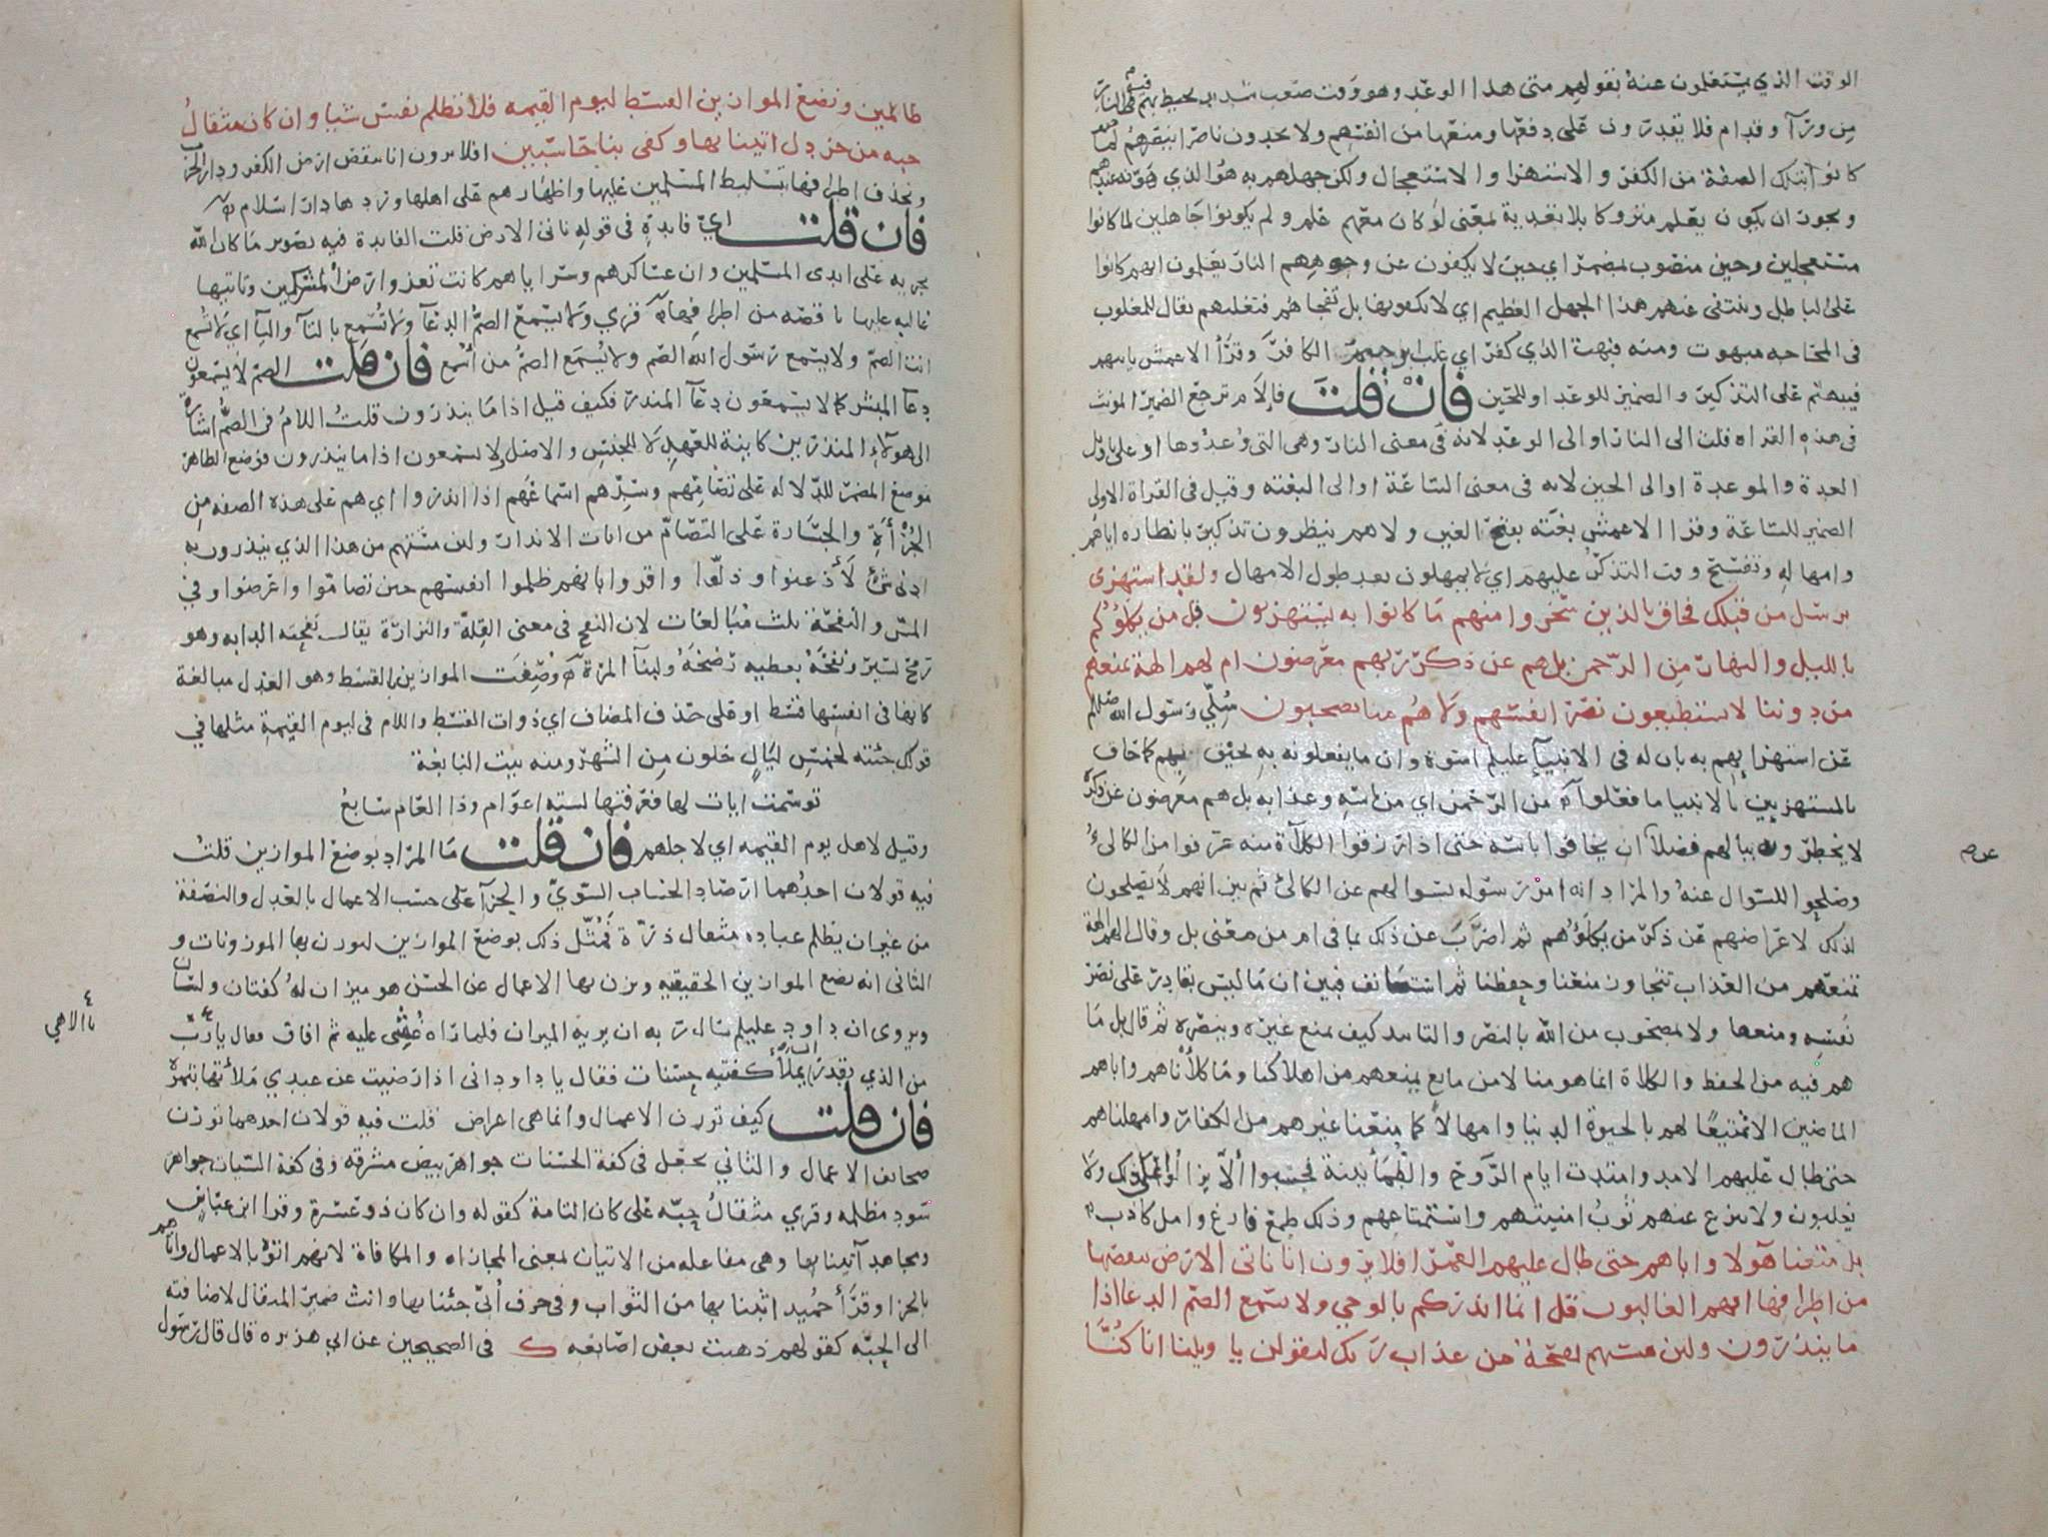 الوقت الذي يستعلمون عنه بقولهم متى هذا الوعد وهو وقت صعب شديد تحيط بهم فيه النار
من ورآ وقدام فلا يقدرون على دفعها ومنعها من انفسهم ولا يجدون ناصرا ينصرهم لما
كانوا بتلك الصفة من الكفر والاستهزا والاستعجال ولكن جهلهم به هو الذي هونه عندهم
ويجوز ان يكون يعلم متروكا بلا تعدية بمعنى لو كان معهم علم ولم يكونوا جاهلين لما كانوا
مستعجلين وحين منصوب بمضمر اي حين لا يكفون عن وجوههم النار يعلمون انهم كانوا
على الباطل وينتفى عنهم هذا الجهل العظيم اي لا يكفونها بل تفجاهم فتغلبهم يقال للمغلوب
فى المحاجه مبهوت ومنه فبهت الذي كفر اي غلب ابرهيم الكافر وقرأ الاعمش ياتيهم
فيبهتهم على التذكير والضمير للوعد او للحين فان قلت فإلام ترجع الضمير المونث
فى هذه القراه قلت الى النار او الى الوعد لانه فى معنى النار وهى التى وعدوها او على تاويل
العدة والموعدة او الى الحين لانه فى معنى الساعة او الى البغته وقيل فى القراة الاولى
الضمير للساعة وقرا الاعمش بغتة بفتح الغين ولا هم ينظرون تذكير بانظاره اياهم
وامهاله وتفسيح وقت التذكر عليهم اي لا يمهلون بعد طول الامهال ولقد استهزى
برسل من قبلك فحاق بالذين سخروا منهم ما كانوا به يستهزون قل من يكلؤكم
بالليل والنهار من الرحمن بل هم عن ذكر ربهم معرضون ام لهم الهة تمنعهم
من دوننا لا يستطيعون نصر انفسهم ولا هم منا يصحبون سُلّي رسول الله صلعم
عن استهزايهم به بان له فى الانبيآ عليهم اسوة وان ما يفعلونه به يحيق بهم كما حاق
بالمستهزيين بالانبيا ما فعلوا من الرحمن اي من باسه وعذابه بل هم معرضون عن ذكره
لا يخطرونه ببالهم فضلا ان يخافوا باسه حتى اذا رزقوا الكلآة منه عرفوا من الكالئ
وصلحوا للسوال عنه والمراد انه امر رسوله بسوالهم عن الكالئ ثم بين انهم لا يصلحون
لذلك لاعراضهم عن ذكر من يكلؤهم ثم اضرب عن ذلك بما فى ام من معنى بل وقال الهم الهة
تمنعهم من العذاب تتجاوز منعنا وحفظنا ثم استانف فبين ان ما ليس بقادر على نصر
نفسه ومنعها ولا بمصحوب من الله بالنصر والتاييد كيف يمنع غيره وينصره ثم قال بل ما
هم فيه من الحفظ والكلاة انما هو منا لا من مانع يمنعهم من اهلاكنا وما كلأناهم واباهم
الماضين الا تمتيعًا لهم بالحيوة الدنيا وامهالا كما متعنا غيرهم من الكفار وامهلناهم
حتى طال عليهم الامد وامتدت ايام الروح والطمأنينة فحسبوا ألّا يزالوا على ذلك ولا
يغلبون ولا ينزع عنهم ثوب امنيتهم واستمتاعهم وذلك طمع فارغ وامل كاذب
بل متعنا هآولا واباهم حتى طال عليهم العمر افلا يرون انا ناتى الارض ننقصها
من اطرافها افهم الغالبون قل انما انذركم بالوحي ولا يسمع الصم الدعا اذا
ما ينذرون ولين مستهم نفحة من عذاب ربك ليقولن يا ويلنا انا كنا
عن م
ظالمين ونضع الموازين القسط ليوم القيمه فلا تظلم نفس شيا وان كان مثقال
حبه من خردل اتينا بها وكفى بنا حاسبين افلا يرون انا ننقض ارض الكفر ودار الحرب
ونحذف اطرافها بتسليط المسلمين عليها واظهارهم على اهلها وردها دار اسلام
فان قلت اي فايدة فى قوله ناتى الارض قلت الفايدة فيه تصوير ما كان الله
يجريه على ايدى المسلمين وان عساكرهم وسراياهم كانت تغذو ارض المشركين وتاتيها
غالبه عليها ناقصه من اطرافها قري ولا يسمع الصمُّ الدعآ ولا تُسمِع بالتآ واليآ اي لا تسمع
انت الصم ولا يسمع رسول الله الصم ولا يُسمَع الصمُّ من أسمع فان قلت الصم لا يسمعون
دعآ المبشر كما لا يسمعون دعآ المنذر فكيف قيل اذا ما ينذرون قلت اللام فى الصُّم اشاره
الى هولآء المنذرين كاينة للعهد لا للجنس والاصل لا يسمعون اذا ما ينذرون فوضع الظاهر
موضع المضمر للدلاله على تصامهم وسدّهم اسماعهم اذا انذروا اي هم على هذه الصفه من
الجُرْأَةِ والجسارة على التصامّ من ايات الانذار ولين مستهم من هذا الذي ينذرون به
ادنى شئ لأذعنوا وذلّوا واقروا بانهم ظلموا انفسهم حين تصامّوا واعرضوا وفي
المسّ والنفحة ثلث مُبالغات لان النفح فى معنى القِلّة والنزارة يقال نفحته الدابه وهو
رمح يسير ونفحَهُ بعطيه رضخهُ ولبنآ المرة وُصِفَت الموازين بالقسط وهو العدل مبالغة
كانها فى انفسها قسط او على حذف المضاف اي ذوات القسط واللام فى ليوم القيمة مثلها في
قولك جئته لخمسِ ليَالٍ خلون من الشهر ومنه بيت النابغة
توسمت ايات لها فعرفتها لستة اعوام وذا العام سابعُ
وقيل لاهل يوم القيمه اي لاجلهم فان قلت ما المراد بوضع الموازين قلت
فيه قولان احدُهما ارصاد الحساب السويّ والجزآ على حسب الاعمال بالعدل والنصَفة
من غير ان يظلم عباده مثقال ذرة فمُثّل ذلك بوضع الموازين ليوزن بها الموزونات و
الثانى انه يضع الموازين الحقيقيه ويزن بها الاعمال عن الحسن هو ميزان لهُ كفتان ولسان
ويروى ان داود عليلم سال ربه ان يريه الميزان فلما رآه غُشى عليه ثم افاق فقال يا رب
من الذي يقدر ان يملأ كفته حسنات فقال يا داود انى اذا رضيت عن عبدي ملأتها بتمرة
فان قلت كيف توزن الاعمال وانما هى اعراض قلت فيه قولان احدهما توزن
صحائف الاعمال والثاني تجعل فى كفة الحسنات جواهر بيض مشرقه وفى كفة السيات جواهر
سود مظلمه وقري مثقالُ حبّه على كان التامة كقوله وان كان ذو عسرة وقرا ابن عباس
ومجاهد آتينا بها وهى مفاعله من الاتيان بمعنى المجازاه والمكافاة لانهم اتوه بالاعمال واتاهم
بالجزا وقرأ حُميد اثبنا بها من الثواب وفى حرف أُبيّ جئنا بها وانث ضمير المثقال لاضافته
الى الحبّه كقولهم ذهبت بعض اصابعه ك فى الصحيحين عن ابي هريره قال قال رسول
يا الاهي